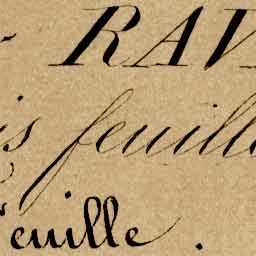 RAV
is feuille
euille.